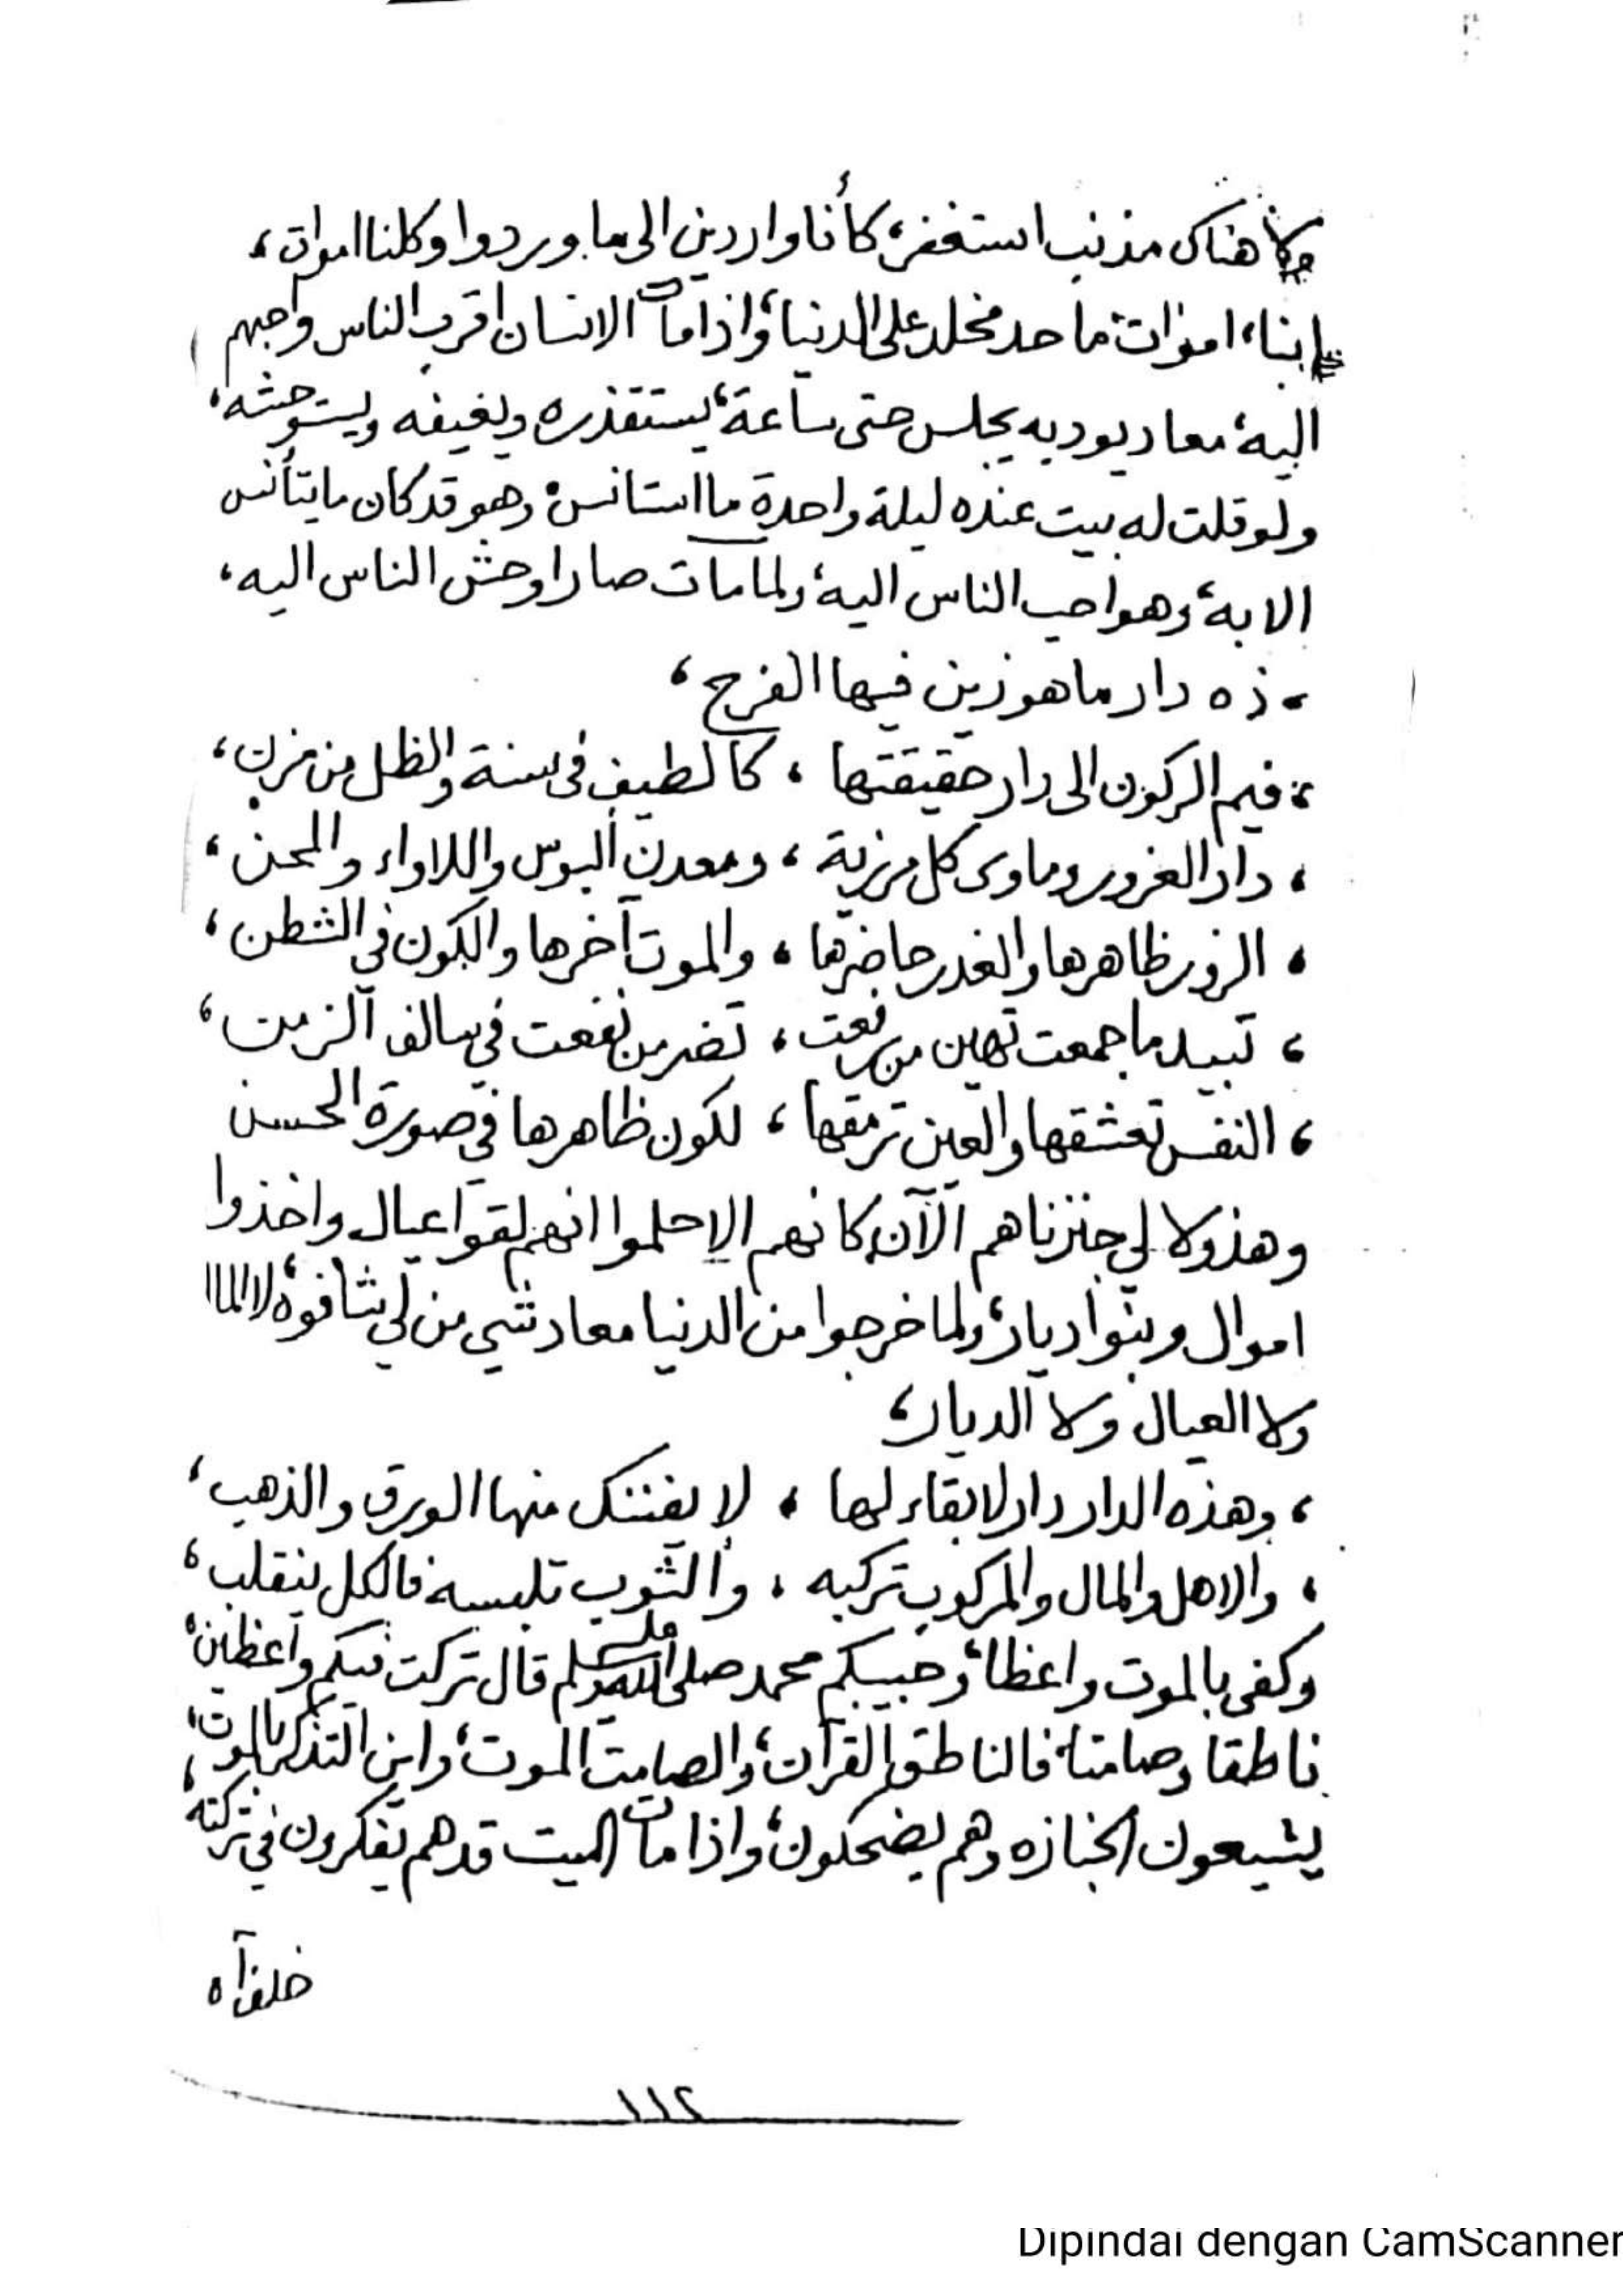 ولا هناك مذنب استغفر، كأنا واردين الى ما وردوا وكلنا اموات،
ابناء اموات، ما حد مخلد على الدنيا، واذا مات الانسان اقرب الناس واحبهم
اليه، معاد يوديه يجلس حتى ساعة، يستقذره ويغيفه ويستوحشه،
ولو قلت له بيت عنده ليلة واحدة ما استانس، وهو قد كان ما يتأنس
الا به، وهو احب الناس اليه، ولما مات صار اوحش الناس اليه،
، ذه دار ما هو زين فيها الفرح ،
، فيم الركون الى دار حقيقتها ، كالطيف في سنة والظل من مزن ،
، دار الغرور وماوى كل مرزية ، ومعدن البوس واللاواء والمحن ،
، الزور ظاهرها والغدر حاضرها ، والموت آخرها والكون في الشطن ،
، تبيد ما جمعت تهين من رفعت ، تضر من نفعت في سالف الزمن ،
، النفس تعشقها والعين ترمقها ، لكون ظاهرها في صورة الحسن
وهذولا لي جنزناهم الآن كانهم الا حلموا انهم لقوا عيال واخذوا
اموال وبنوا ديار، ولما خرجوا من الدنيا معاد شي من لي شافوه، لا المال
ولا العيال ولا الديار،
، وهذه الدار دار لا بقاء لها ، لا يفتنك منها الورق والذهب ،
، والاهل والمال والمركوب تركبه ، والثوب تلبسه فالكل ينقلب ،
وكفى بالموت واعظا، وحبيبكم محمد صلى الله عليه وسلم قال تركت فيكم واعظين،
ناطقا وصامتا، فالناطق القرآن، والصامت الموت، واين التذكر بالموت،
يشيعون الجنازه وهم يضحكون، واذا مات الميت قدهم يفكرون في تركته،
خلفآه
١١٢
Dipindai dengan CamScanner